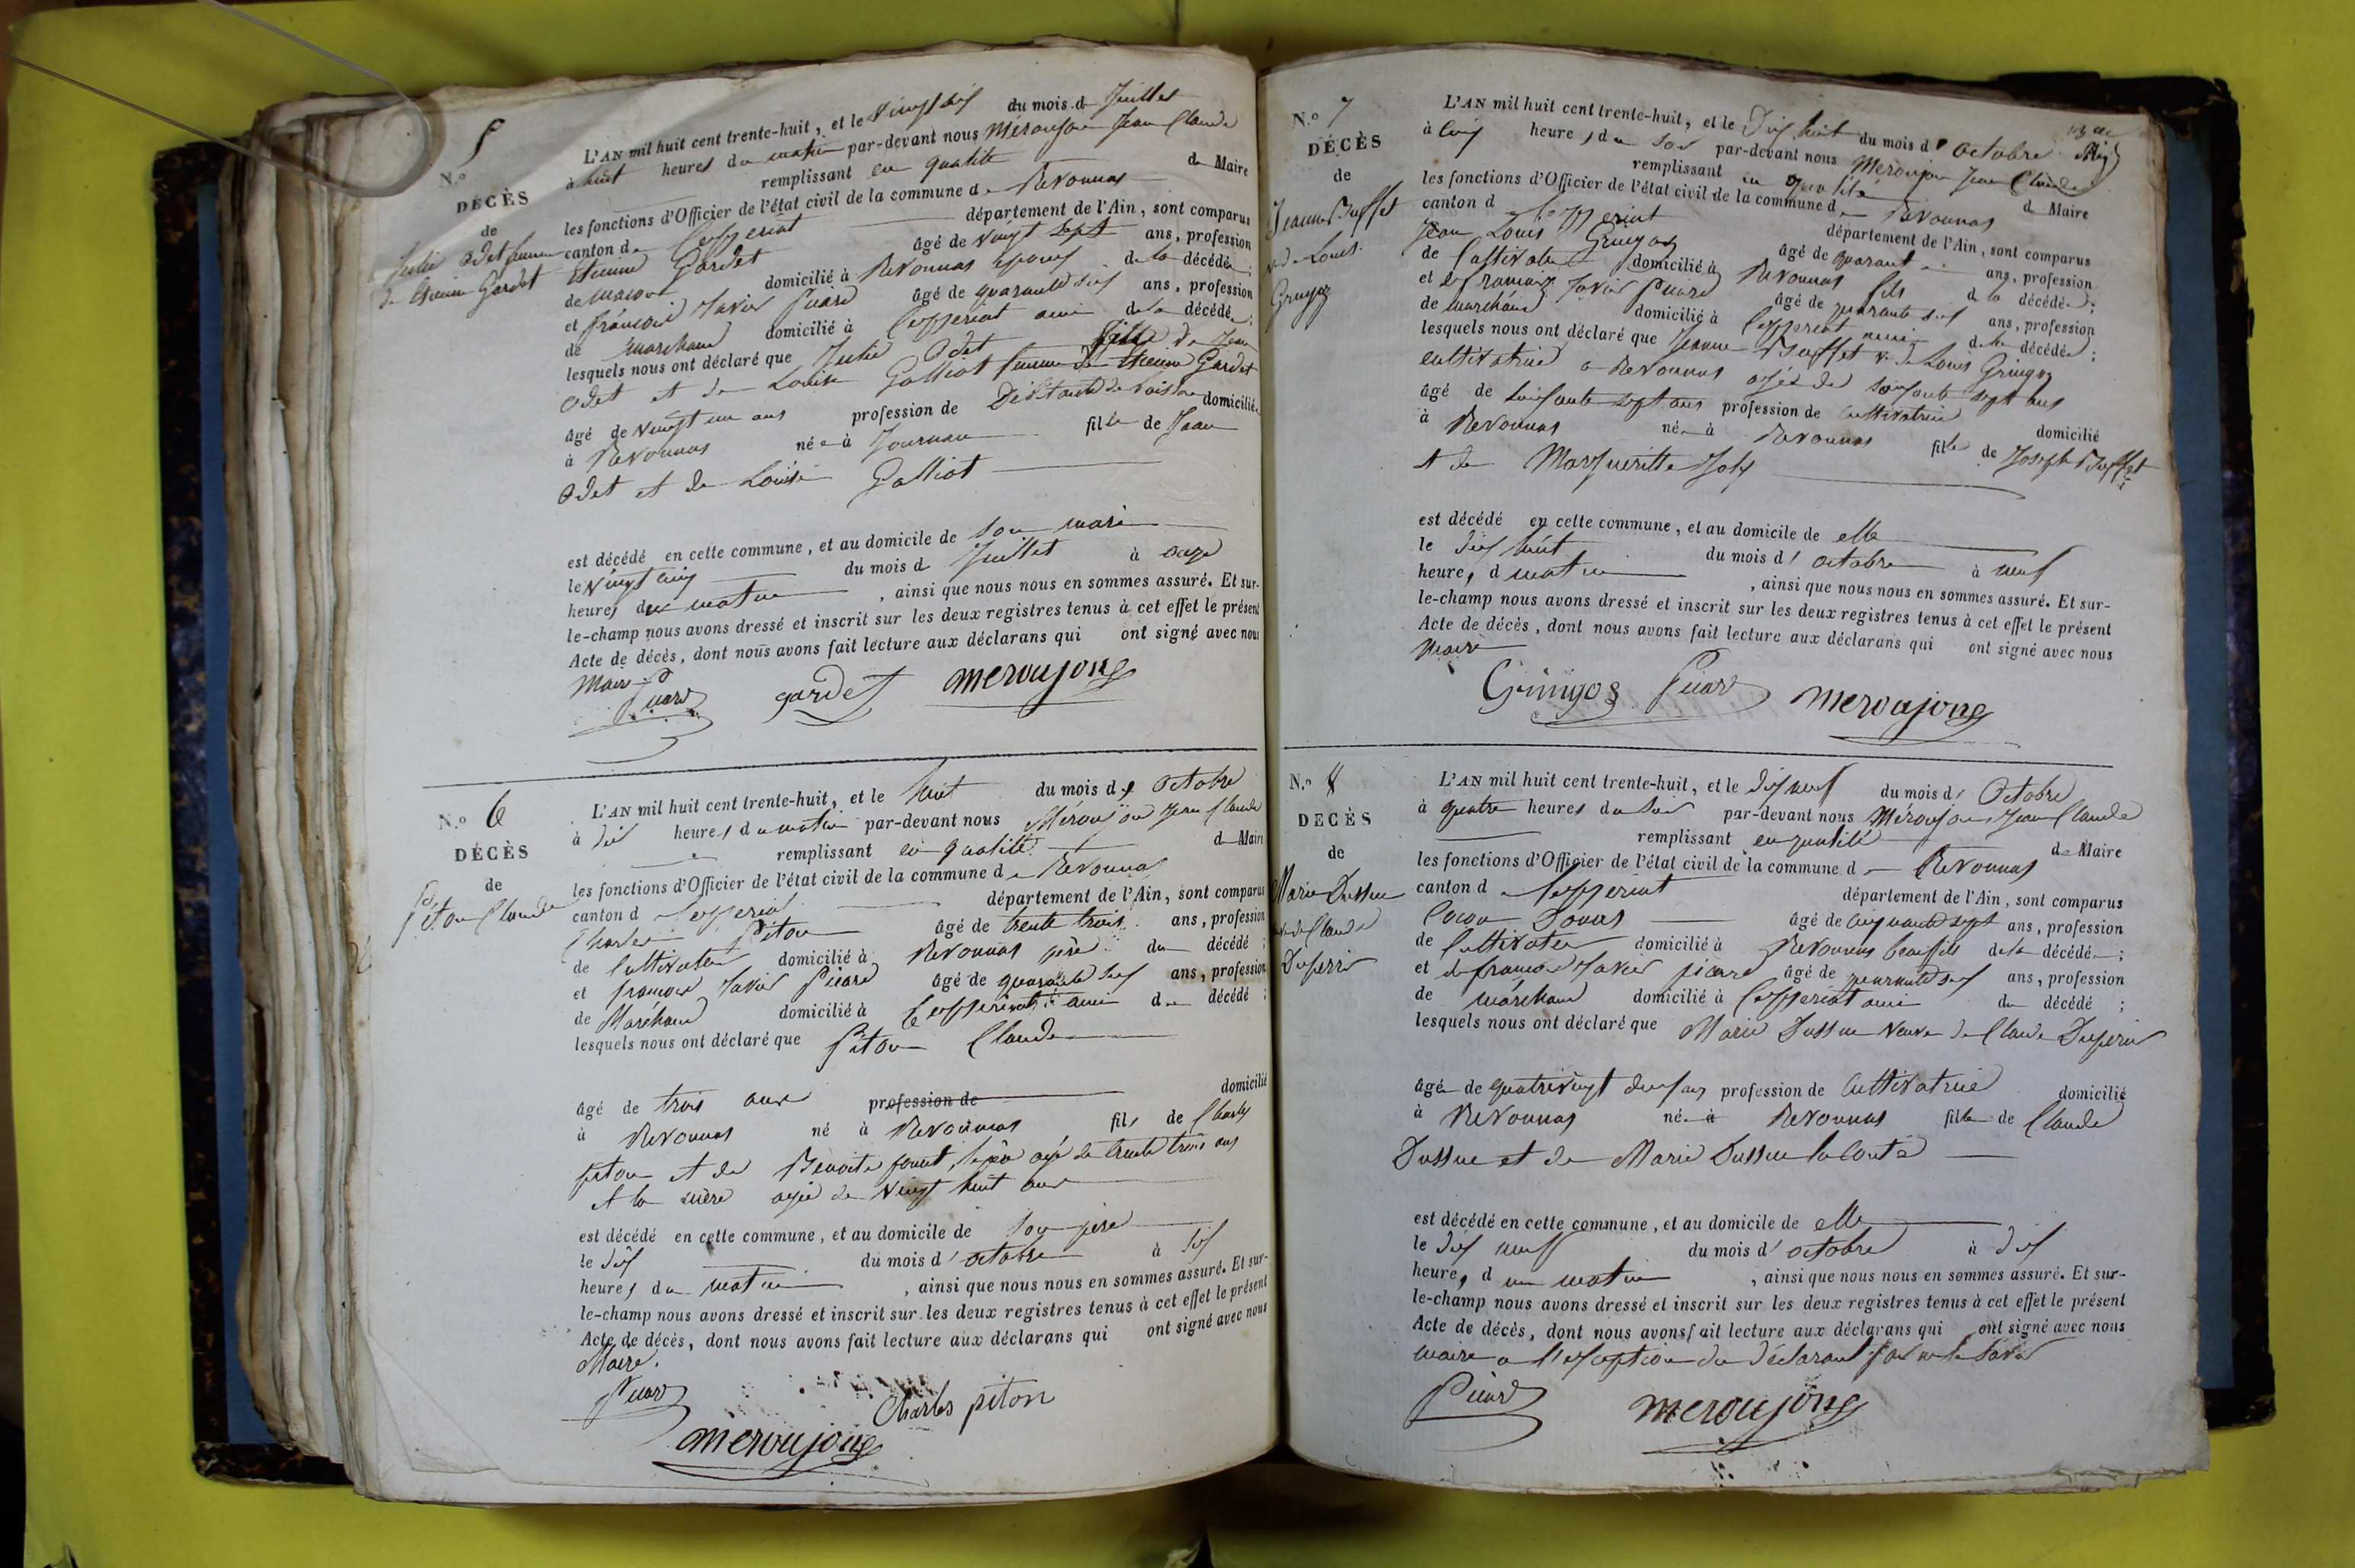 N.º 5
DÉCÈS
de
Julie Odet femme
de Etienne Gardet
L'AN mil huit cent trente-huit, et le vingt six du mois de Juillet
à huit heures du matin par-devant nous Méroujon Jean Claude
remplissant en qualité de Maire
les fonctions d'Officier de l'état civil de la commune de Revonnas
canton de Ceyzeriat département de l'Ain, sont comparus
Etienne Gardet âgé de vingt sept ans, profession
de maçon domicilié à Revonnas epoux de la décédée ;
et françois Xavier Picard âgé de quarante six ans, profession
de marchand domicilié à Ceyzeriat ami de la décédée ;
lesquels nous ont déclaré que Julie Odet fille de Jean
Odet et de Louise Galliot femme de Etienne Gardet
âgé de vingt un ans profession de domicilié
à Revonnas née à Journan fille de Jean
Odet et de Louise Galliot
est décédé en cette commune, et au domicile de son mari
le vingt cinq du mois de Juillet à onze
heures du matin, ainsi que nous nous en sommes assuré. Et sur-
le-champ nous avons dressé et inscrit sur les deux registres tenus à cet effet le présent
Acte de décès, dont nous avons fait lecture aux déclarans qui ont signé avec nous
Maire
Picard gardet meroujong
N.º 6
DÉCÈS
de
Piton Claude
L'AN mil huit cent trente-huit, et le huit du mois de Octobre
à dix heures du matin par-devant nous Méroujon Jean Claude
remplissant en qualité de Maire
les fonctions d'Officier de l'état civil de la commune de Revonnas
canton de Ceyzeriat département de l'Ain, sont comparus
Charles Piton âgé de trente trois ans, profession
de Cultivateur domicilié à Revonnas père du décédé ;
et françois Xavier Picard âgé de quarante six ans, profession
de Maréchand domicilié à Ceyzeriat ami du décédé ;
lesquels nous ont déclaré que Piton Claude
âgé de trois ans profession de domicilié
à Revonnas né à Revonnas fils de Charles
piton et de Benoite le père agé de trente trois ans
et la mère agée de vingt huit ans
est décédé en cette commune, et au domicile de son père
le dix du mois d'octobre à six
heures du matin, ainsi que nous nous en sommes assuré. Et sur-
le-champ nous avons dressé et inscrit sur les deux registres tenus à cet effet le présent
Acte de décès, dont nous avons fait lecture aux déclarans qui ont signé avec nous
Maire.
Picard Charles piton
meroujong
N.º 7
DÉCÈS
de
Jeanne Buffet
v.e de Louis
Gringoz
L'AN mil huit cent trente-huit, et le Dix huit du mois d'octobre
à cinq heures du soir par-devant nous Meroujon Jean Claude
remplissant en qualité de Maire
les fonctions d'Officier de l'état civil de la commune de Revonnas
canton de Ceyzeriat département de l'Ain, sont comparus
Jean Louis Gringoz âgé de quarante ans, profession
de Cultivateur domicilié à Revonnas fils de la décédée ;
et françois Xavier Picard âgé de quarante six ans, profession
de marchand domicilié à Ceyzeriat ami de la décédée ;
lesquels nous ont déclaré que Jeanne Buffet v.e de Louis Gringoz
cultivatrice a Revonnas agée de soixante sept ans
âgé de soixante sept ans profession de cultivatrice domicilié
à Revonnas née à Revonnas fille de Joseph Buffet
et de Margueritte Joly
est décédé en cette commune, et au domicile de elle
le dix huit du mois d'octobre à neuf
heures d matin, ainsi que nous nous en sommes assuré. Et sur-
le-champ nous avons dressé et inscrit sur les deux registres tenus à cet effet le présent
Acte de décès, dont nous avons fait lecture aux déclarans qui ont signé avec nous
Maire
Gringoz Picard meroujong
N.º 8
DÉCÈS
de
Marie Dussuc
v.e de Claude
Duperrier
L'AN mil huit cent trente-huit, et le dix neuf du mois d'Octobre
à quatre heures du soir par-devant nous Méroujon Jean Claude
remplissant en qualité de Maire
les fonctions d'Officier de l'état civil de la commune de Revonnas
canton de Ceyzeriat département de l'Ain, sont comparus
âgé de cinquante sept ans, profession
de Cultivateur domicilié à Revonnas beau fils de la décédée ;
et de françois Xavier picard âgé de quarante six ans, profession
de marchand domicilié à Ceyzeriat ami du décédé ;
lesquels nous ont déclaré que Marie Dussuc veuve de Claude
âgée de quatrevingt deux ans profession de Cultivatrice domicilié
à Revonnas née à Revonnas fille de Claude
Dussuc et de Marie Dussuc
est décédé en cette commune, et au domicile de elle
le dix neuf du mois d'octobre à dix
heures du matin, ainsi que nous nous en sommes assuré. Et sur-
le-champ nous avons dressé et inscrit sur les deux registres tenus à cet effet le présent
Acte de décès, dont nous avons fait lecture aux déclarans qui ont signé avec nous
maire a l'exception du déclarant
Picard meroujong